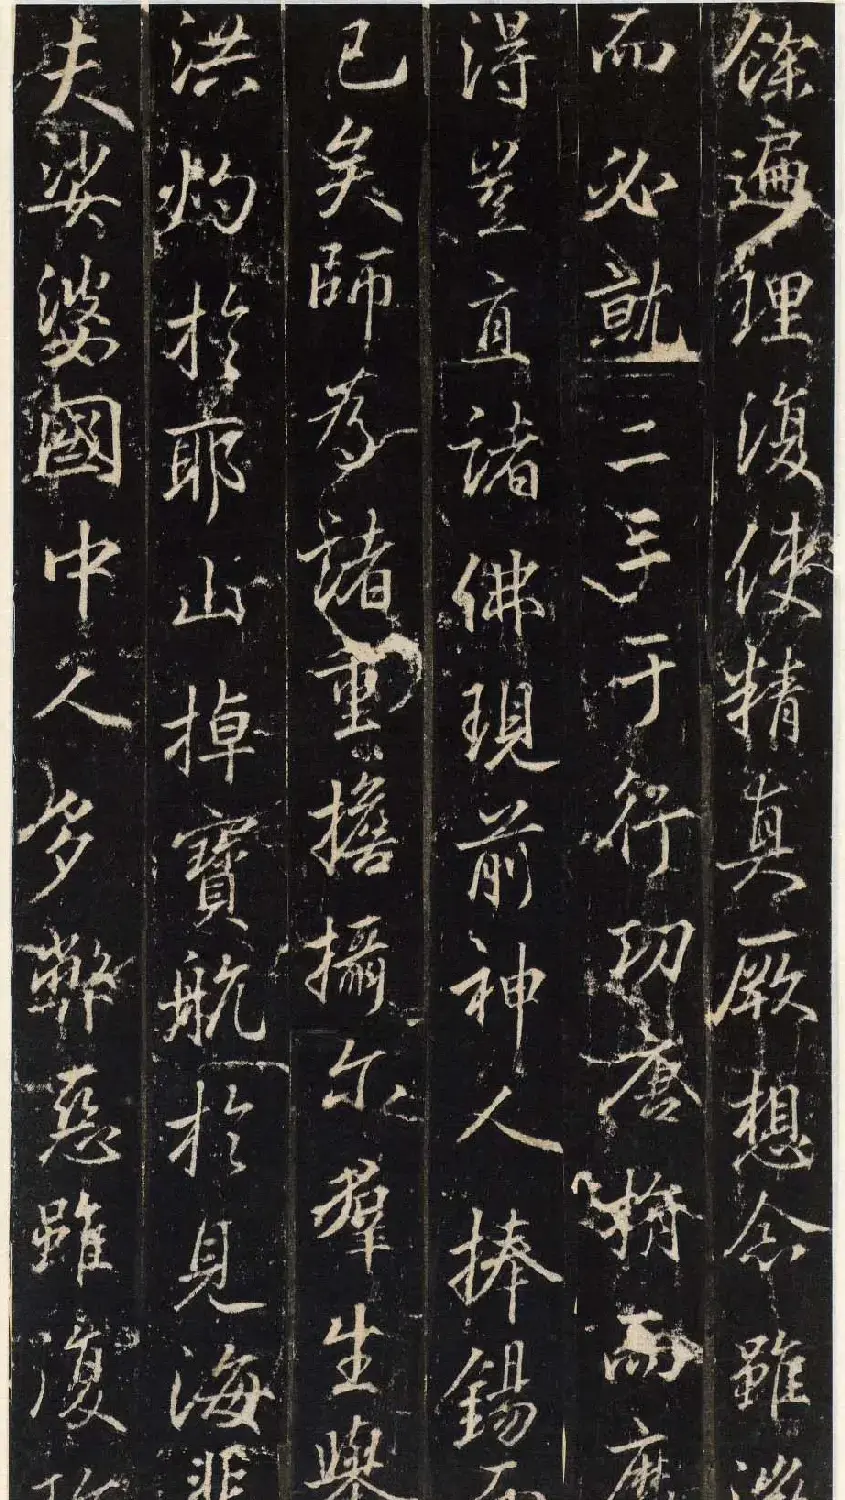 餘遍理復使精真厥想念雖
而必就二三于行功唐捐而
得豈直諸佛現前神人捧錫而
已矣師為諸重擔攝尔羣生舉
洪灼於耶山掉寶航於見海非
夫娑婆國中人多弊惡雖復